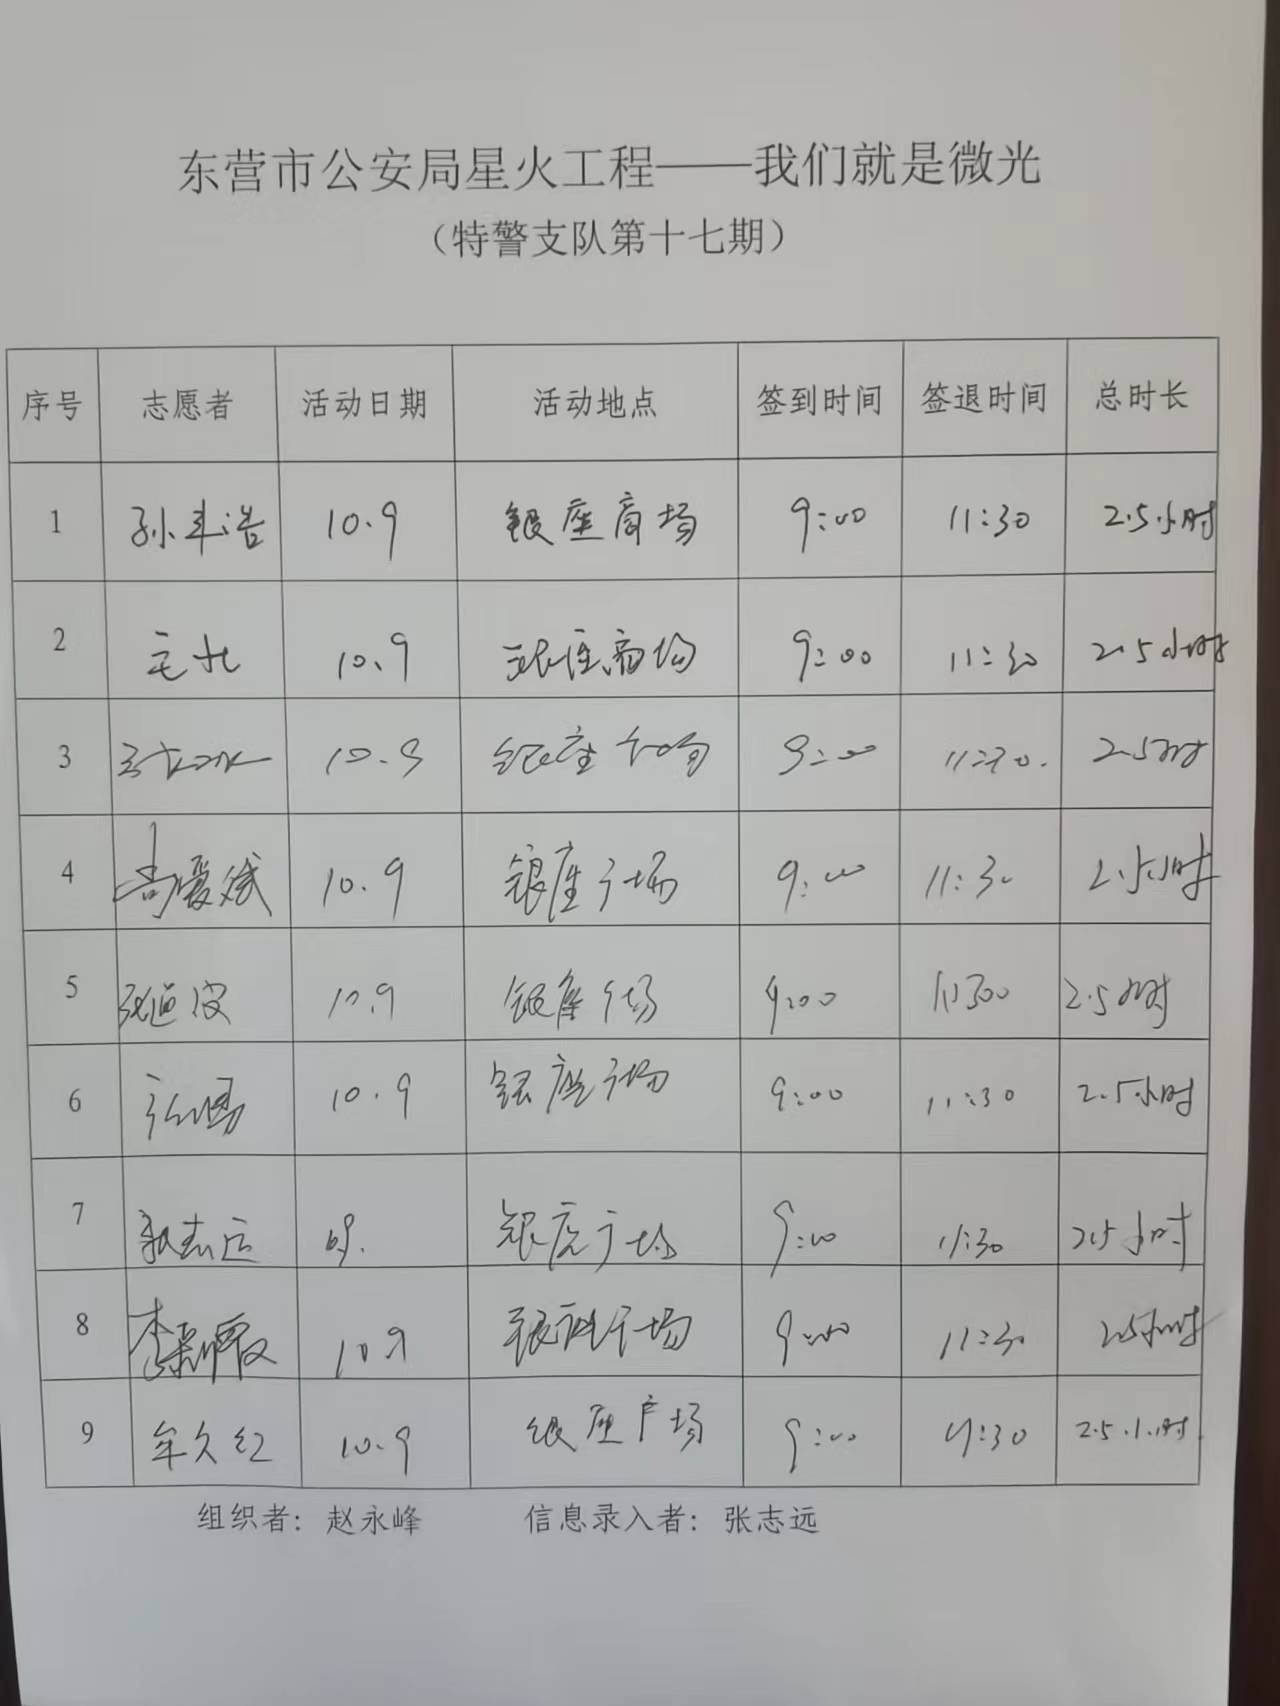 东营市公安局星火工程——我们就是微光
（特警支队第十七期）
序号 志愿者 活动日期 活动地点 签到时间 签退时间 总时长
1 孙丰浩 10.9 银座商场 9:00 11:30 2.5小时
2 10.9 银座商场 9:00 11:30 2.5小时
3 10.9 银座 9:00 11:30. 2.5小时
4 尚爱斌 10.9 银座广场 9:00 11:30 2.5小时
5 10.9 银座广场 9:00 2.5小时
6 10.9 银座广场 9:00 11:30 2.5小时
7 张志远 银座广场 9:00 11:30 2.5小时
8 10.9 银座广场 9:00 11:30 2.5小时
9 牟久红 10.9 银座广场 9:00 11:30 2.5小时
组织者：赵永峰 信息录入者：张志远